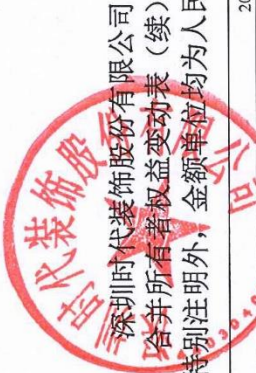 深圳时代装饰股份有限公司
合并所有者权益变动表（续）
特别注明外，金额单位均为人民
20
时代装饰股
公司
4403040